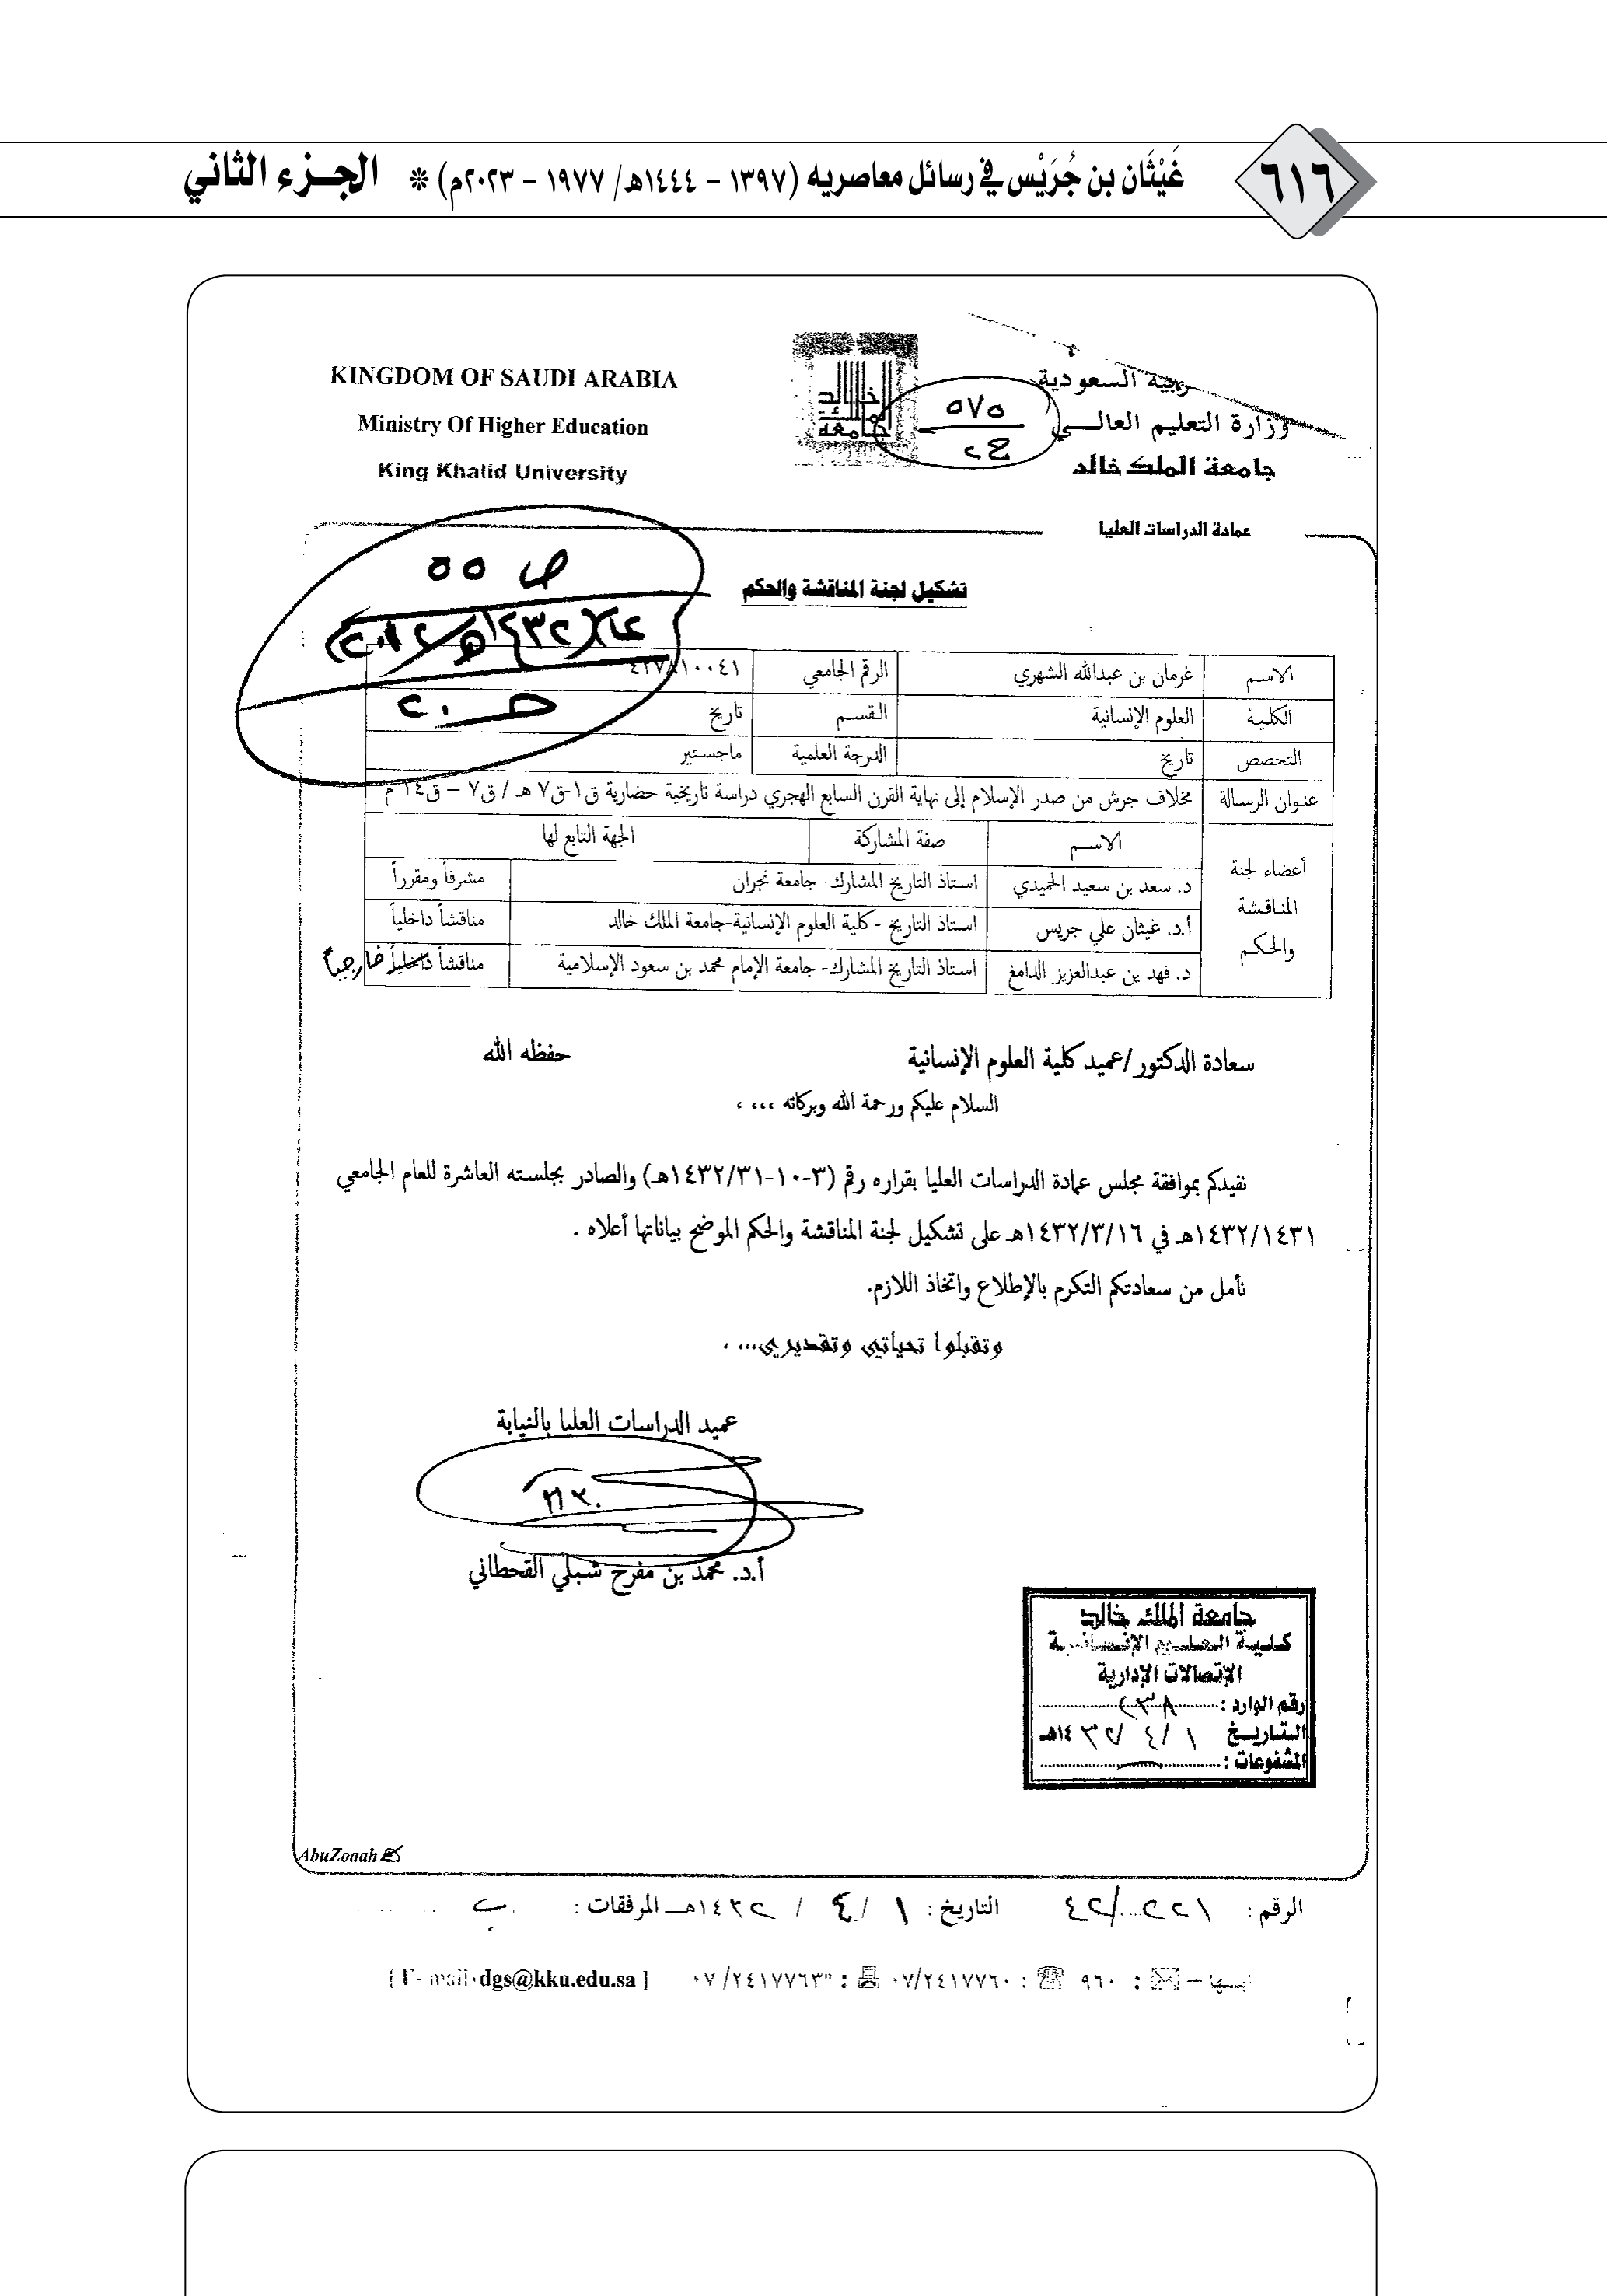 ٦١٦
غَيْثَان بن جُرَيْس في رسائل معاصريه (١٣٩٧ – ١٤٤٤هـ/ ١٩٧٧ – ٢٠٢٣م) * الجـزء الثاني
KINGDOM OF SAUDI ARABIA
Ministry Of Higher Education
King Khalid University
ربية السعودية
وزارة التعليم العالـــي
جامعة الملك خالد
٥٧٥
ح٢
عمادة الدراسات العليا
ص ٥٥
تشكيل لجنة المناقشة والحكم
الاسم غرمان بن عبدالله الشهري الرقم الجامعي ٤٢٧٨١٠٠٤١
الكلية العلوم الإنسانية القسم تاريخ
التخصص تاريخ الدرجة العلمية ماجستير
عنوان الرسالة مخلاف جرش من صدر الإسلام إلى نهاية القرن السابع الهجري دراسة تاريخية حضارية ق١-ق٧ هـ / ق٧ – ق١٤ م
أعضاء لجنة المناقشة والحكم
الاسم صفة المشاركة الجهة التابع لها
د. سعد بن سعيد الحميدي استاذ التاريخ المشارك- جامعة نجران مشرفاً ومقرراً
أ.د. غيثان علي جريس استاذ التاريخ -كلية العلوم الإنسانية-جامعة الملك خالد مناقشاً داخلياً
د. فهد بن عبدالعزيز الدامغ استاذ التاريخ المشارك- جامعة الإمام محمد بن سعود الإسلامية مناقشاً داخلياً خارجياً
سعادة الدكتور/عميد كلية العلوم الإنسانية حفظه الله
السلام عليكم ورحمة الله وبركاته ،،، ،
نفيدكم بموافقة مجلس عمادة الدراسات العليا بقراره رقم (٣-١٠-١٤٣٢/٣١هـ) والصادر بجلسته العاشرة للعام الجامعي
١٤٣٢/١٤٣١هـ في ١٤٣٢/٣/١٦هـ على تشكيل لجنة المناقشة والحكم الموضح بياناتها أعلاه .
نأمل من سعادتكم التكرم بالإطلاع واتخاذ اللازم.
وتقبلوا تحياتي وتقديري،،، ،
عميد الدراسات العليا بالنيابة
أ.د. محمد بن مفرح شبلي القحطاني
جامعة الملك خالد
كلية العلوم الإنسانية
الإتصالات الإدارية
رقم الوارد :
التاريخ ١ / ٤ / ١٤٣٢هـ
المشفوعات :
AbuZoaah
الرقم : التاريخ : ١ / ٤ / ١٤٣٢هـ المرفقات :
٩٦٠ : ٠٧/٢٤١٧٧٦٠ : ٠٧/٢٤١٧٧٦٣ [ E- mail:dgs@kku.edu.sa ]